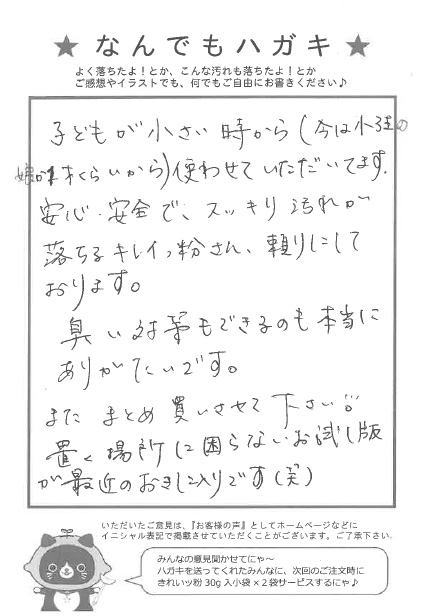 ★なんでもハガキ★
よく落ちたよ！とか、こんな汚れも落ちたよ！とか
ご感想やイラストでも、何でもご自由にお書きください♪
子どもが小さい時から(今は小3の
娘が 才くらいから)使わせていただいてます。
安心・安全で、スッキリ汚れが
落ちるキレイッ粉さん、頼りにして
おります。
臭い対策もできるのも本当に
ありがたいです。
また まとめ買いさせて下さい
置く場所に困らないお試し版
が最近のお気に入りです(笑)
いただいたご意見は、『お客様の声』としてホームページなどに
イニシャル表記で掲載させていただくことがございます。ご了承下さい。
みんなの意見聞かせてにゃ〜
ハガキを送ってくれたみんなに、次回のご注文時に
きれいッ粉30g入小袋×2袋サービスするにゃ♪